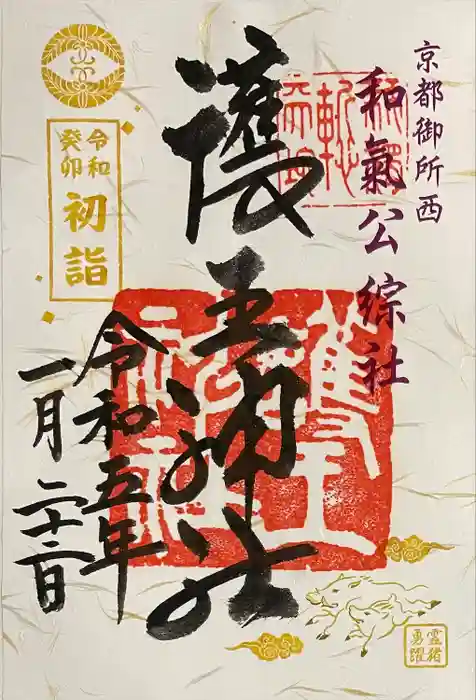 京都御所西
和氣公綜社
護王神社
令和五年
一月二十二日
令和
癸卯
初詣
霊猪
勇躍